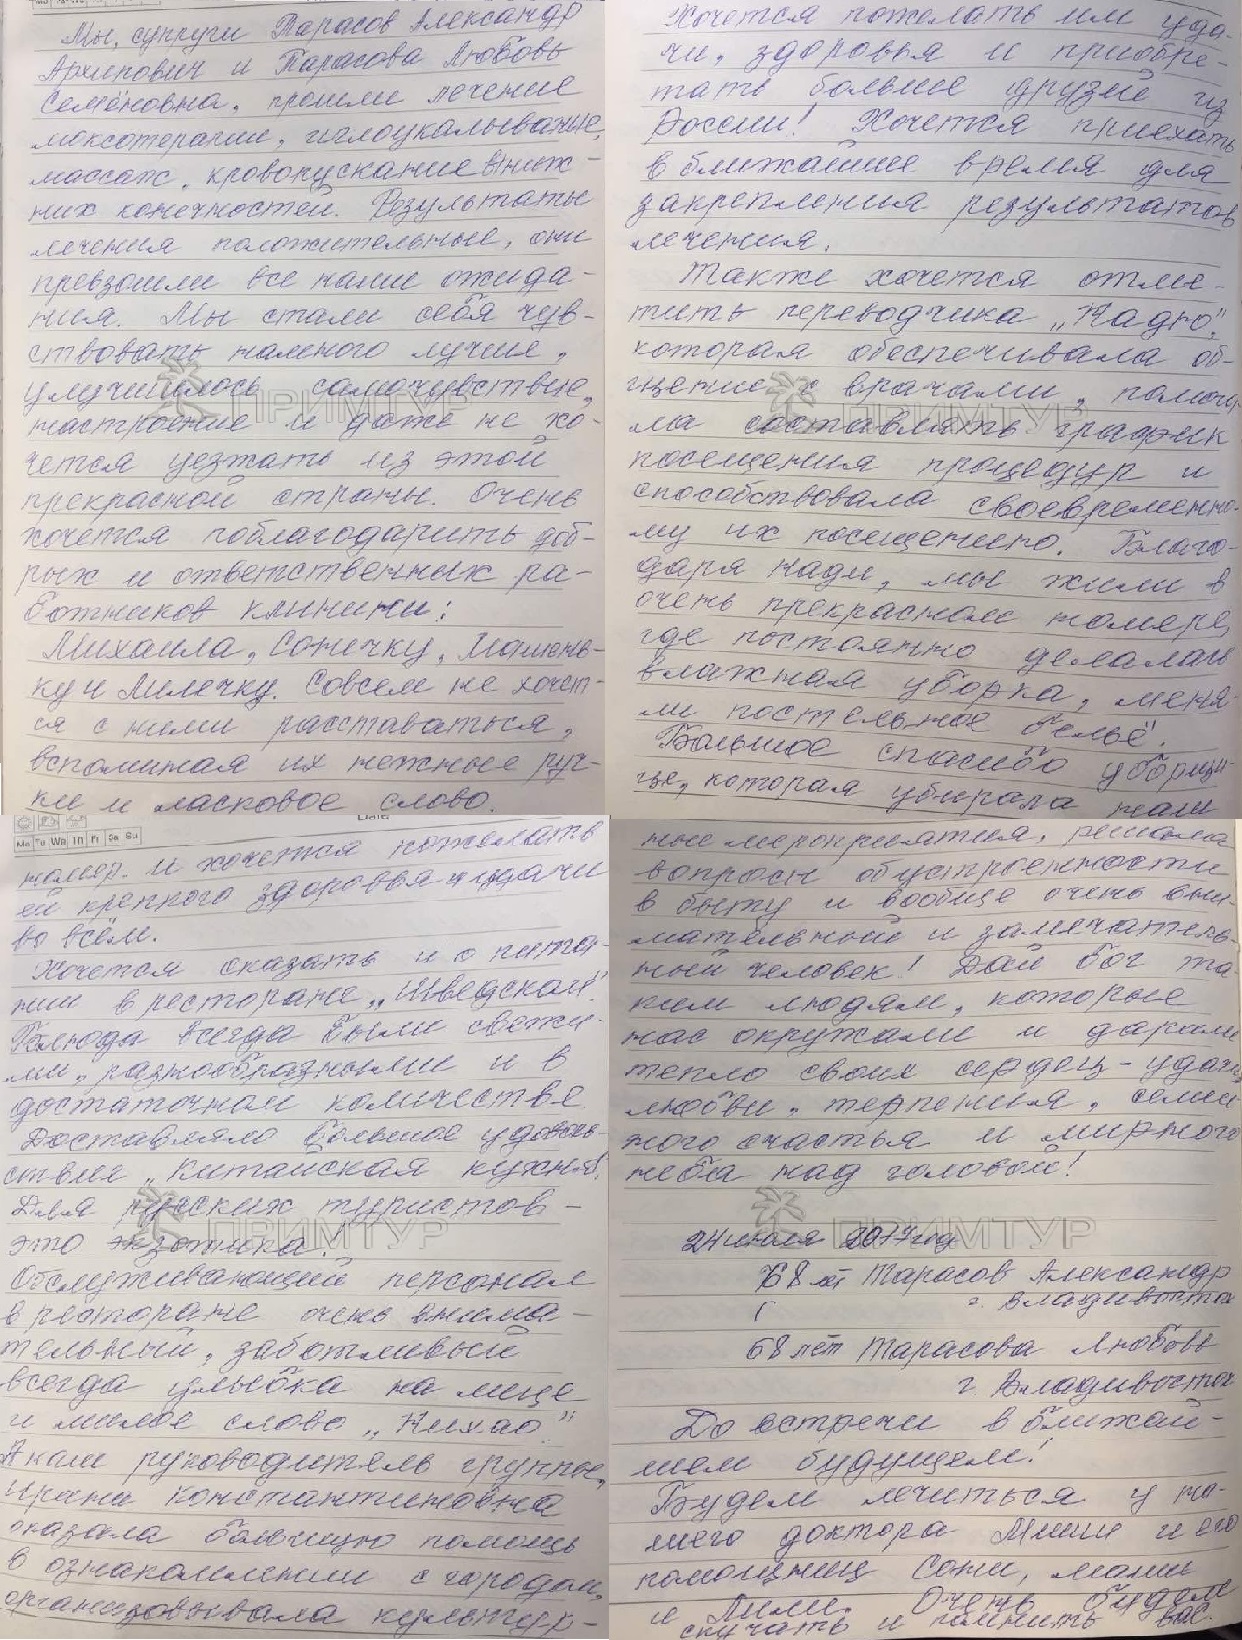 Мы, супруги Тарасов Александр
Архипович и Тарасова Любовь
Семёновна, прошли лечение
моксотерапии, иглоукалывание,
массаж, кровопускание в ниж-
них конечностей. Результаты
лечения положительные, они
превзошли все наши ожида-
ния. Мы стали себя чув-
ствовать намного лучше,
улучшилось самочувствие,
настроение и даже не хо-
чется уезжать из этой
прекрасной страны. Очень
хочется поблагодарить доб-
рых и ответственных ра-
ботников клиники:
Михаила, Сонечку, Машень-
ку и Лилечку. Совсем не хочет-
ся с ними расставаться,
вспоминая их нежные руч-
ки и ласковое слово.
Хочется пожелать им уда-
чи, здоровья и приобре-
тать больше друзей из
России! Хочется приехать
в ближайшее время для
закрепления результатов
лечения.
Также хочется отме-
тить переводчика „Надю",
которая обеспечивала об-
щение с врачами, помога-
ла составлять график
посещения процедур и
способствовала своевременно-
му их посещению. Благо-
даря Нади, мы жили в
очень прекрасном номере,
где постоянно делалась
влажная уборка, меня-
ли постельное бельё.
Большое спасибо уборщи-
це, которая убирала наш
Date
Mo Tu We Th Fr Sa Su
номер. и хочется пожелать
ей крепкого здоровья и удачи
во всём.
Хочется сказать и о пита-
нии в ресторане „Шведском".
Блюда всегда были свежи-
ми, разнообразными и в
достаточном количестве
Доставляло большое удоволь-
ствие „Китайская кухня".
Для русских туристов -
это экзотика.
Обслуживающий персонал
в ресторане очень внима-
тельный, заботливый
всегда улыбка на лице
и милое слово „Нихао"
А наш руководитель группы,
Ирана Константиновна
оказала большую помощь
в ознакомлении с городом,
организовывала культур-
ные мероприятия, решала
вопросы обустроенности
в быту и вообще очень вни-
мательный и замечатель-
ный человек! Дай бог та-
ким людям, которые
нас окружали и дарили
тепло своих сердец - удачи,
любви, терпения, семей-
ного счастья и мирного
неба над головой!
24 июля 2017 год
68 лет Тарасов Александр
г. Владивосток
68 лет Тарасова Любовь
г Владивосток
До встречи в ближай-
шем будущем!
Будем лечиться у на-
шего доктора Миши и его
помощниц Сони, Маши
и Лили. Очень будем
скучать и помнить вас.
ПРИМТУР
ПРИМТУР
ПРИМТУР
ПРИМТУР